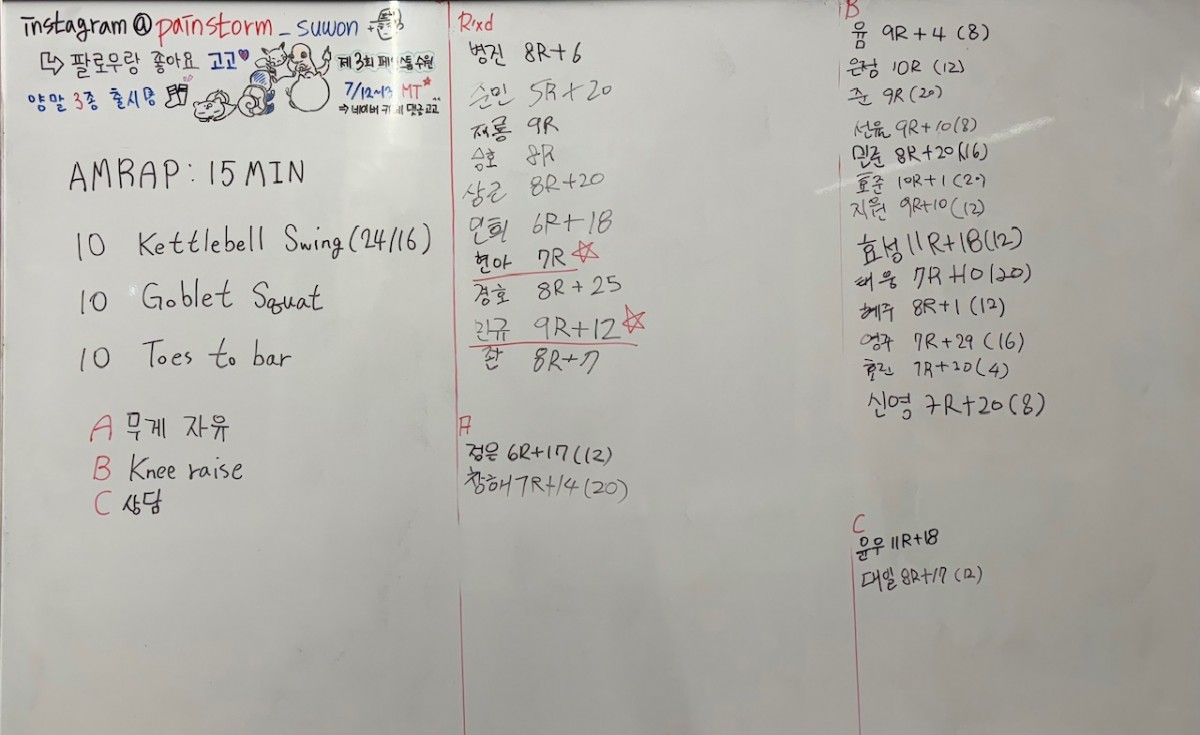 instagram@painstorm_suwon
팔로우랑 좋아요 고고
양말 3종 출시
제 3회 페인스톰 수원
7/12~13 MT
⇒ 네이버 카페 댓글고고
AMRAP: 15 MIN
10 Kettlebell Swing (24/16)
10 Goblet Squat
10 Toes to bar
A 무게 자유
B Knee raise
C 상담
Rxd
병진 8R+6
순민 5R+20
재룡 9R
승호 8R
상근 8R+20
연희 6R+18
현아 7R
경호 8R+25
란규 9R+12
환 8R+7
A
정은 6R+17 (12)
창해 7R+14 (20)
B
윰 9R+4 (8)
은정 10R (12)
준 9R (20)
선율 9R+10 (8)
민준 8R+20 (16)
효준 10R+1 (20)
지원 9R+10 (12)
효성 11R+18 (12)
태웅 7R+10 (20)
혜주 8R+1 (12)
영주 7R+29 (16)
효린 7R+20 (4)
신영 7R+20 (8)
C
윤우 11R+18
대일 8R+17 (12)